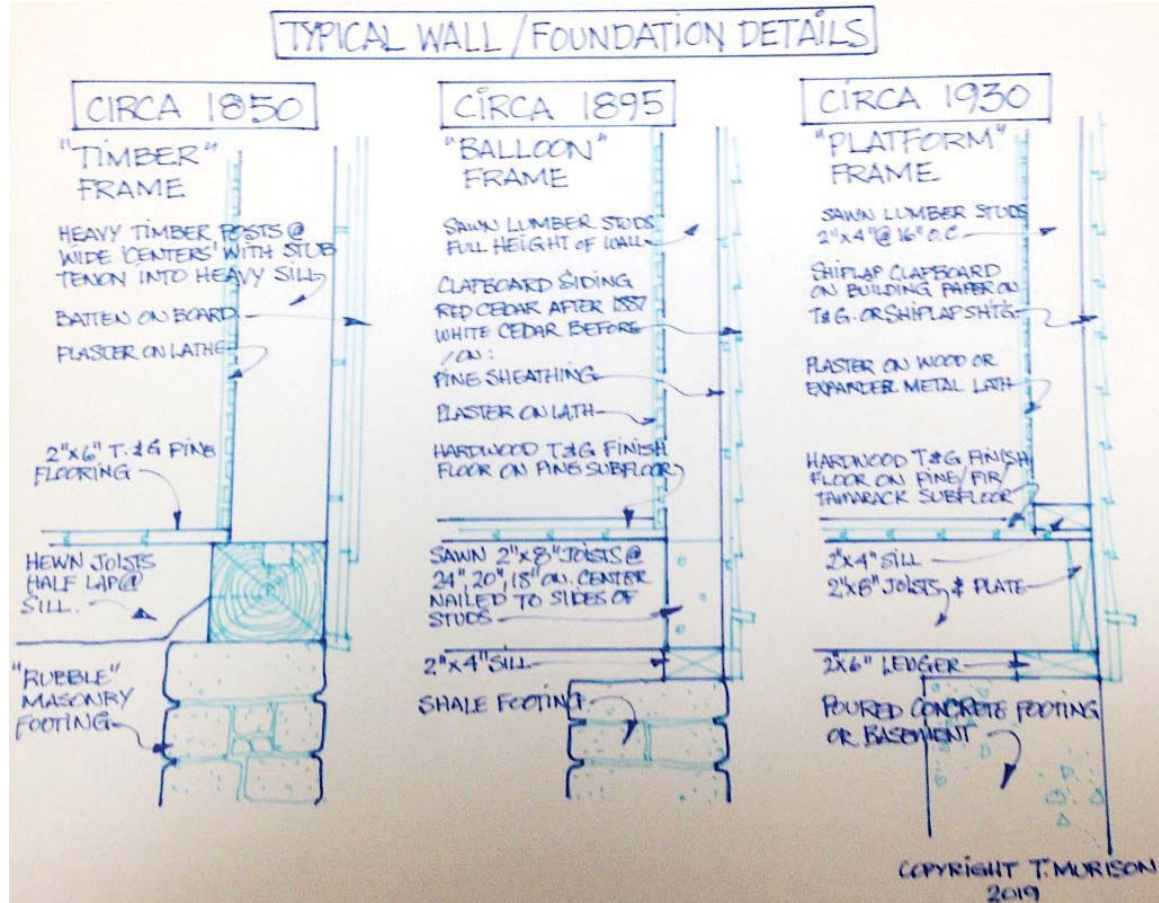 TYPICAL WALL / FOUNDATION DETAILS
CIRCA 1850
"TIMBER"
FRAME
HEAVY TIMBER POSTS @
WIDE 'CENTERS' WITH STUB
TENON INTO HEAVY SILL
BATTEN ON BOARD
PLASTER ON LATHE
2"x6" T. & G PINE
FLOORING
HEWN JOISTS
HALF LAP @
SILL.
"RUBBLE"
MASONRY
FOOTING
CIRCA 1895
"BALLOON"
FRAME
SAWN LUMBER STUDS
FULL HEIGHT OF WALL
CLAPBOARD SIDING
RED CEDAR AFTER 1887
WHITE CEDAR BEFORE
/ON:
PINE SHEATHING
PLASTER ON LATH
HARDWOOD T&G FINISH
FLOOR ON PINE SUBFLOOR
SAWN 2"x8" JOISTS @
24", 20", 18" ON. CENTER
NAILED TO SIDES OF
STUDS
2"x4" SILL
SHALE FOOTING
CIRCA 1930
"PLATFORM"
FRAME
SAWN LUMBER STUDS
2"x4" @ 16" O.C
SHIPLAP CLAPBOARD
ON BUILDING PAPER ON
T&G. OR SHIPLAP SHTG
PLASTER ON WOOD OR
EXPANDER METAL LATH
HARDWOOD T&G FINISH
FLOOR ON PINE/FIR/
TAMARACK SUBFLOOR
2"x4" SILL
2"x8" JOISTS & PLATE
2x6" LEDGER
POURED CONCRETE FOOTING
OR BASEMENT
COPYRIGHT T. MURISON
2019